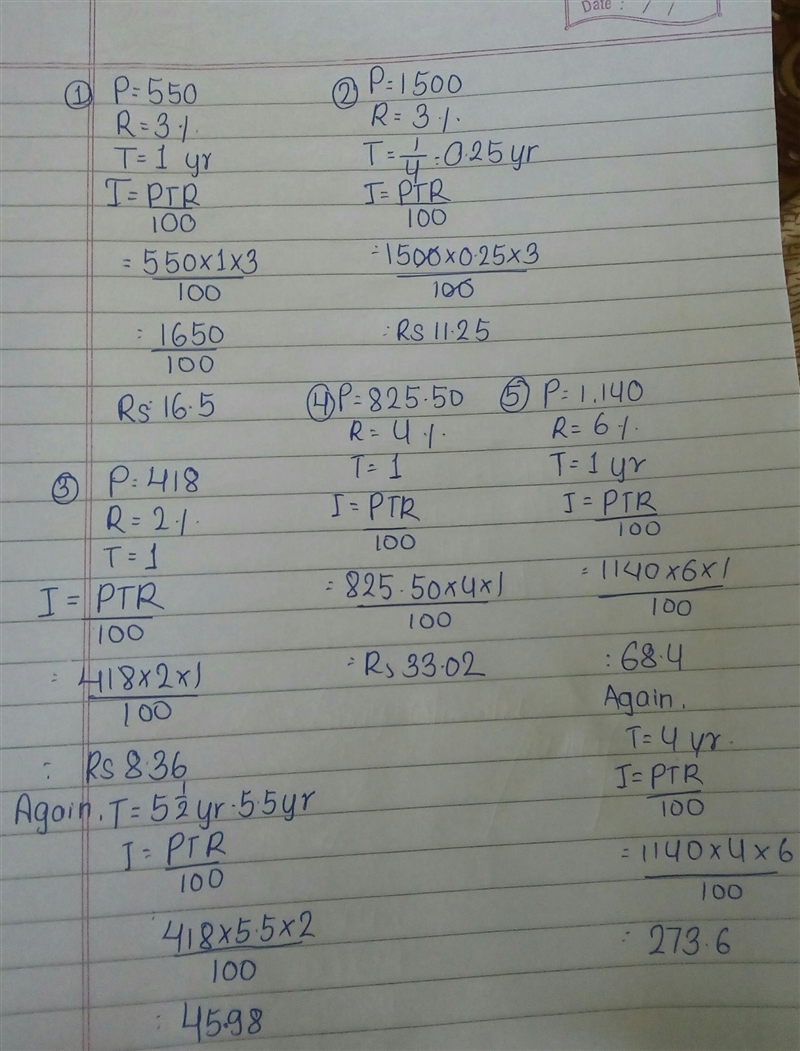 Date : / /
① P=550
R=3%
T=1 yr
I=PTR
100
=550×1×3
100
:1650
100
Rs 16.5
② P=1500
R=3%
T=1/4=0.25yr
I=PTR
100
=1500×0.25×3
100
:Rs 11.25
③ P=418
R=2%
T=1
I=PTR
100
:418×2×1
100
: Rs 8.36
Again. T=5 1/2 yr.5.5yr
I=PTR
100
418×5.5×2
100
: 45.98
④ P=825.50
R=4%
T=1
I=PTR
100
=825.50×4×1
100
=Rs 33.02
⑤ P=1.140
R=6%
T=1 yr
I=PTR
100
=1140×6×1
100
:68.4
Again.
T=4 yr.
I=PTR
100
=1140×4×6
100
: 273.6